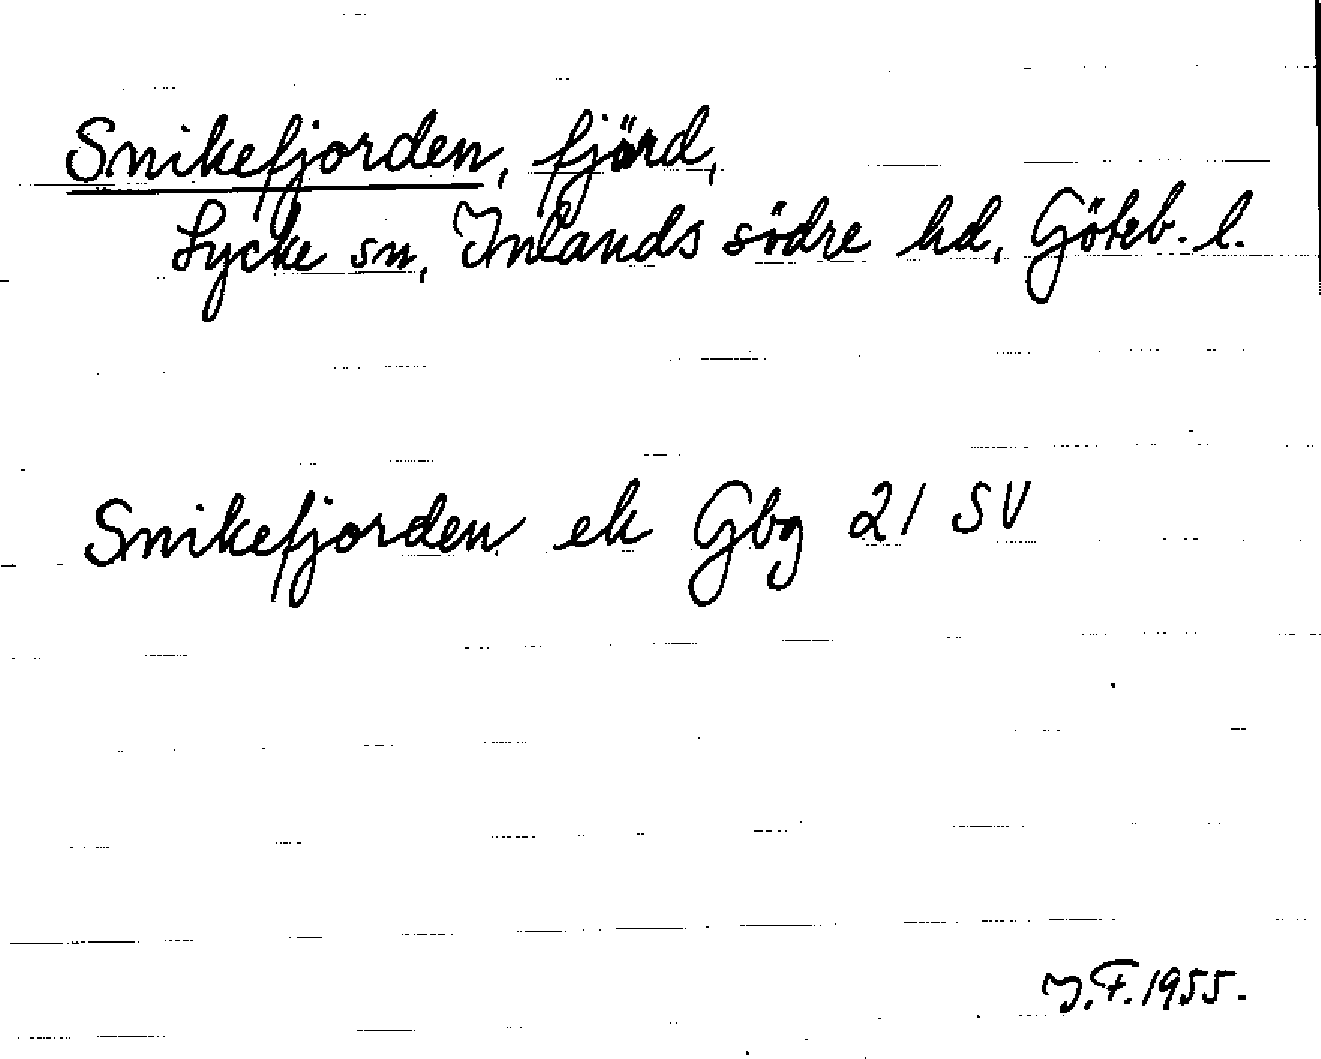 Snikefjorden, fjörd,
Lycke sn, Inlands södre hd, Göteb. l.
Snikefjorden ek Gbg 21 SV
I.F. 1955.